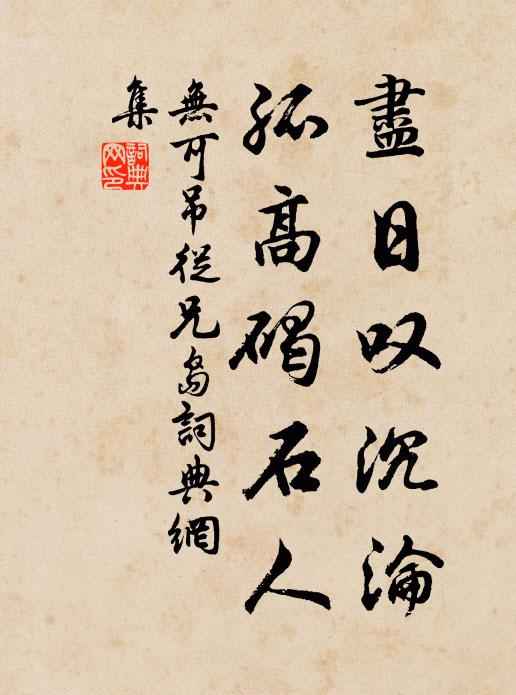 盡日叹沉淪
孤高碣石人
無可吊從兄島詞典網
集
詞典
网印